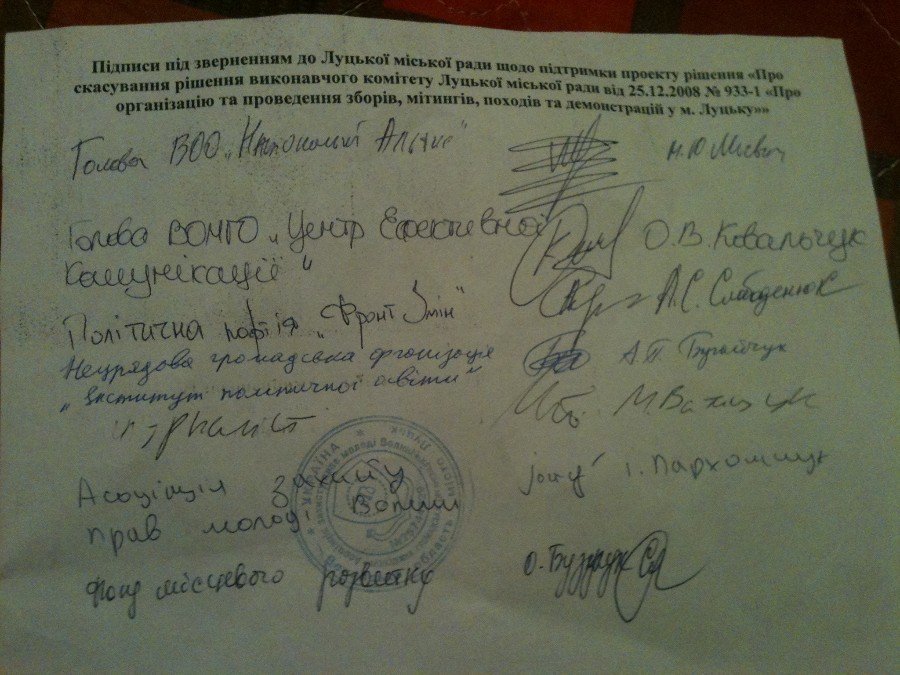 Підписи під зверненням до Луцької міської ради щодо підтримки проекту рішення «Про
скасування рішення виконавчого комітету Луцької міської ради від 25.12.2008 № 933-1 «Про
організацію та проведення зборів, мітингів, походів та демонстрацій у м. Луцьку»»
Голова ВОО „ Альянс"
Голова ВОМГО „Центр Ефективної О.В. Ковальчук
Комунікації" А.С. Слободенюк
Політична партія „Фронт Змін"
Неурядова громадська організація А.П. Бугайчук
„Інститут політичної освіти"
журналіст М.
Асоціація захисту І. Пархомчук
прав молоді Волині
Фонд місцевого розвитку О.
УКРАЇНА